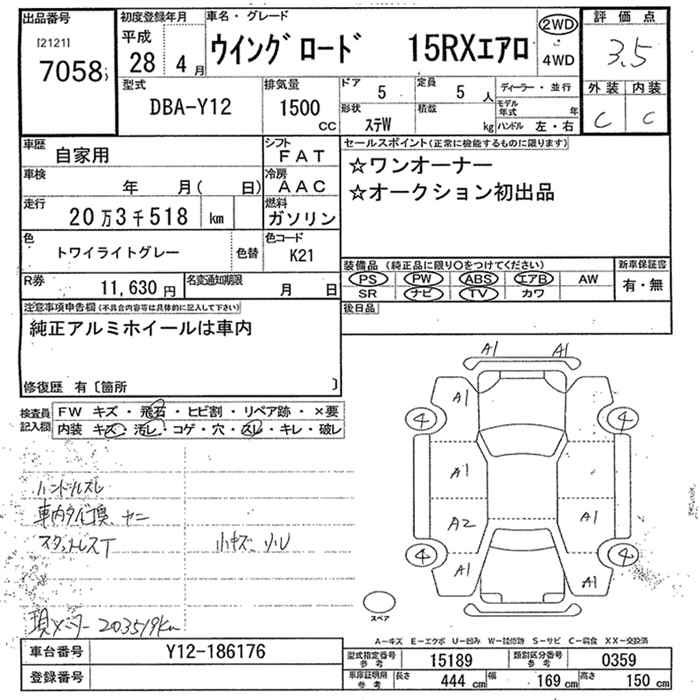 出品番号
[2121]
7058
初度登録年月
平成
28 4月
車名・グレード
ウイングロード 15RXエアロ
2WD
4WD
評価点
3.5
外装 内装
C C
型式
DBA-Y12
排気量
1500 CC
ドア 5
定員 5 人
形状 ステW
積載 kg
ディーラー・並行
モデル年式 年
ハンドル 左・右
車歴
自家用
シフト
FAT
車検
年 月( 日)
冷房
AAC
走行
20万3千518 km
燃料
ガソリン
色
トワイライトグレー
色替
色コード
K21
R券
11,630円
名変通知期限
月 日
セールスポイント(正常に機能するものに限ります)
☆ワンオーナー
☆オークション初出品
装備品 (純正品に限り〇をつけてください)
PS PW ABS エアB AW
SR ナビ TV カワ
新車保証書
有・無
後日品
注意事項申告欄(不具合内容等は具体的に記入して下さい)
純正アルミホイールは車内
修復歴 有〔箇所 〕
検査員記入欄
FW キズ・飛石・ヒビ割・リペア跡・×要
内装 キズ・汚レ・コゲ・穴・スレ・キレ・破レ
ハンドルスレ
車内タバコ臭 ヤニ
スタッドレスT
小キズ 小U
現メーター 203519km
A1 A1
A1
4 4
A1
A2 A1
4 4
A1 A1
スペア
A-キズ E-エクボ U-凹み W-補修跡 S-サビ C-腐食 XX-交換済
車台番号
Y12-186176
登録番号
型式指定番号 参考
15189
類別区分番号 参考
0359
車庫証明用 参考
長さ 444 cm
幅 169 cm
高さ 150 cm